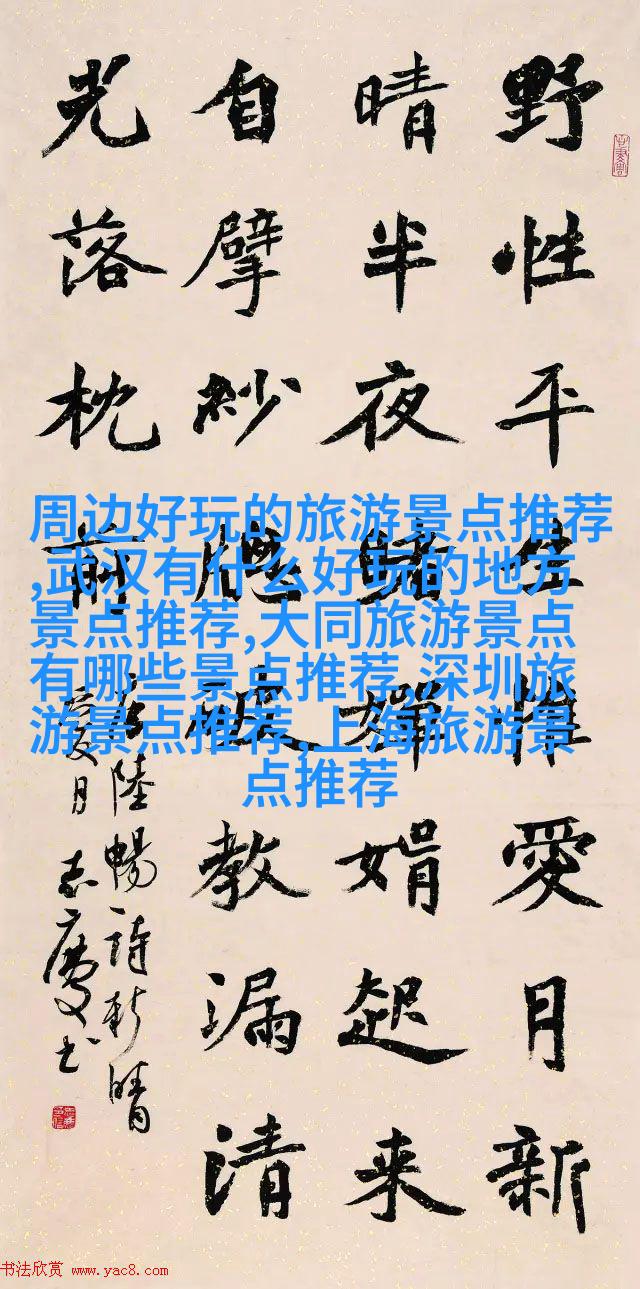 野性平生惟愛月新
晴半夜睹嬋娟起来
自擘紗牕破教漏清
光落枕前
陸暢詩新晴
夏月志慶书
周边好玩的旅游景点推荐
,武汉有什么好玩的地方
景点推荐,大同旅游景点
有哪些景点推荐,深圳旅
游景点推荐,上海旅游景
点推荐
书法欣赏 www.yac8.com